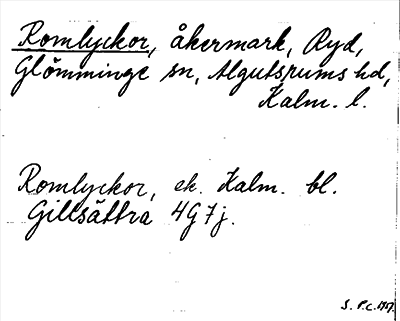 Romlyckor, åkermark, Ryd,
Glömminge sn, Algutsrums hd,
Kalm. l.
Romlyckor, ek. Kalm. bl.
Gillsättra 4G7j.
S. P.C.